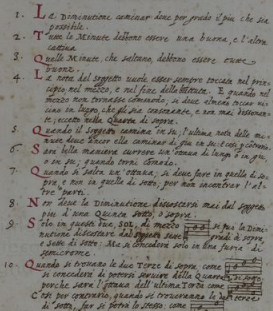 1. La Diminutione caminar deve per grado il piu che sia
possibile.
2. Tutte le Minute debbono essere una buona, e l'altra
cattiva
3. Quelle Minute, che saltano, debbono essere tutte
buone.
4. La nota del soggetto vuole esser sempre toccata nel prin
cipio, nel mezzo, e nel fine della battuta. E quando nel
mezzo non tornasse commodo, si deve almeno toccar vi
cino un luogo, che sia consonante, e non mai dissonan
te; eccetto nella Quarta di sopra.
5. Quando il soggetto camina in su; l'ultima nota delle mi
nute deve ancor ella caminar di giu in su: e così p contrario.
6. Sarà bella maniera correre all'ottava di lungo ò in giu,
ò in su; quando torni comodo.
7. Quando si salta un'ottava; si deve fare in quella di so
pra, e non in quella di sotto, per non incontrar l'al
tre parti.
8. Non deve la Diminutione discostarsi mai dal soggetto
più d'una Quinta sotto, ò sopra.
9. Solo in questi due SOL, di mezzo si può la Dimi
nutione discostare dal soggetto sette gradi di sopra,
e sette di sotto. Ma si concederà solo in una furia di
semicrome.
10. Quando si trovano le due Terze di sopra come
si concederà di potersi servire della Quarta
perche sarà l'ottava dell'ultima Terza come
Così per contrario, quando si troveranno le due terze
di sotto, pur si potrà lo stesso, come